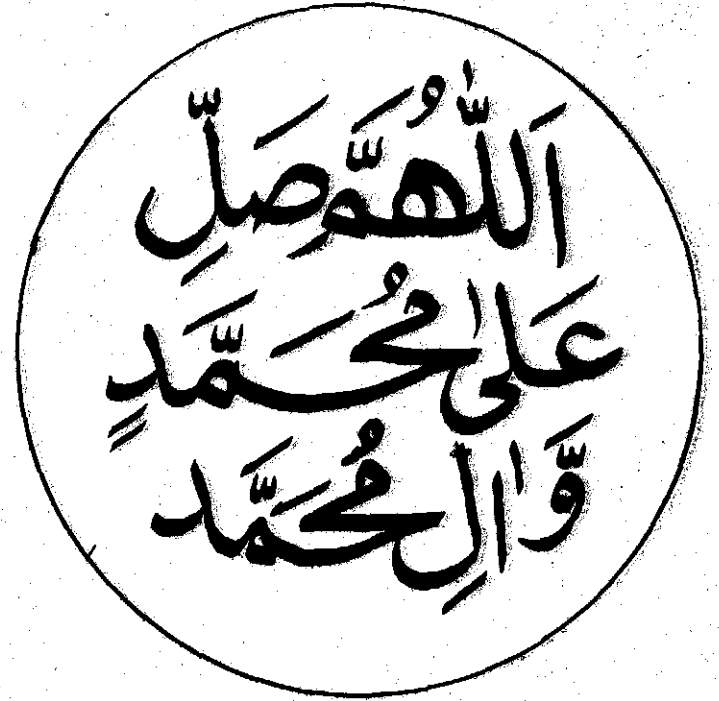 اَللّٰهُمَّ صَلِّ
عَلٰى مُحَمَّدٍ
وَّاٰلِ مُحَمَّد